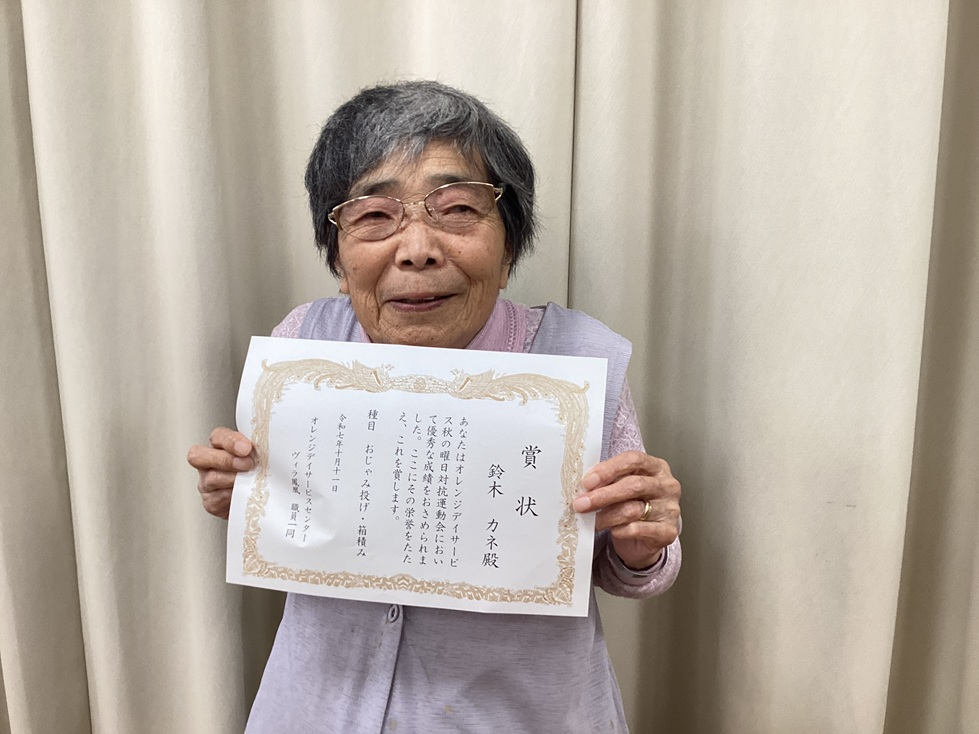 賞状
鈴木 カネ殿
あなたはオレンジデイサービ
ス秋の曜日対抗運動会におい
て優秀な成績をおさめられま
した。ここにその栄誉をたた
え、これを賞します。
種目 おじゃみ投げ・箱積み
令和七年十月十一日
オレンジデイサービスセンター
ヴィラ鳳凰 職員一同